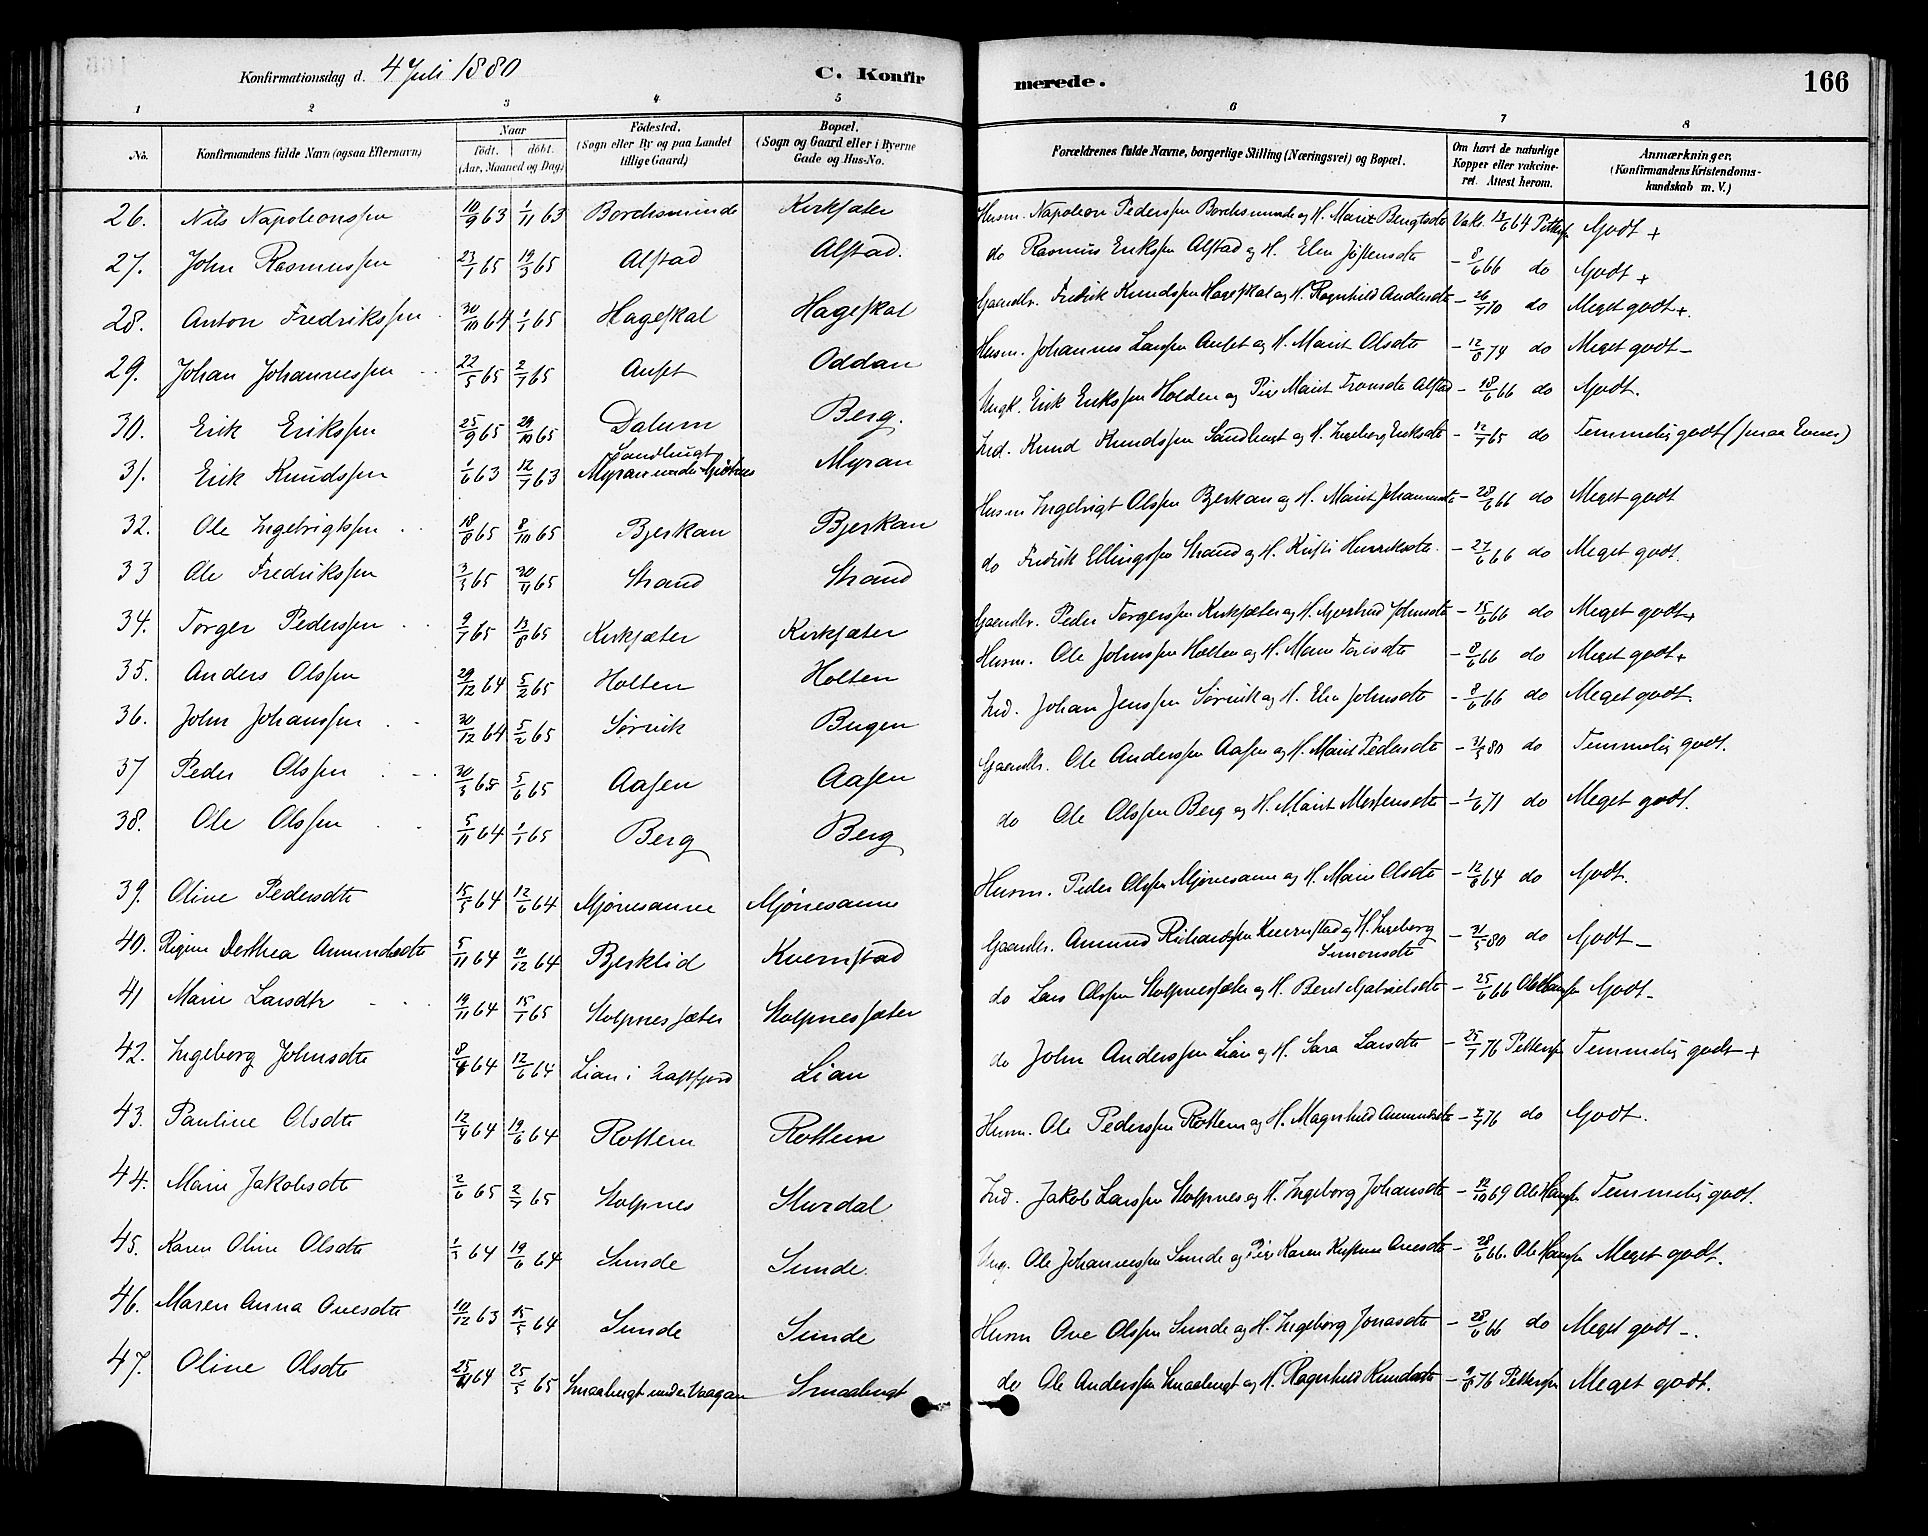 Konfirmationsdag d. 4 Juli 1880 C. Konfirmerede. 166
1 2 3 4 5 6 7 8
No. Konfirmandens fulde Navn (ogsaa Efternavn) Naar födt. döbt. (Aar, Maaned og Dag) Födested. (Sogn eller By og paa Landet tillige Gaard) Bopæl. (Sogn og Gaard eller i Byerne Gade og Hus-No. Forældrenes fulde Navne, borgerlige Stilling (Næringsvei) og Bopæl. Om havt de naturlige Kopper eller vakcineret. Attest herom. Anmærkninger. (Konfirmandens Kristendomskundskab m. V.)
26. Nils Napoleonssen 10/9 63 1/11 63 Borchsminde Kirksæter Husm. Napoleon Pederssen Borchsminde og H. Marit Bengtsdtr Vaks. 13/6 64 Pettersen Godt +
27. John Rasmussen 23/1 65 19/3 65 Alstad Alstad. do Rasmus Erikssen Alstad og H. Elen Jöstensdtr - 8/6 66 do Godt +
28. Anton Fredrikssen 30/10 64 1/1 65 Hageskal Hageskal Gaardbr. Fredrik Knudssen Hageskal og H. Ragnhild Andersdtr - 26/7 70 do Meget godt +.
29. Johan Johannessen 22/5 65 2/7 65 Aunet Oddan Husm. Johannes Larssen Aunet og H. Marit Olsdtr - 12/8 74 do Meget godt -
30. Erik Erikssen 25/9 65 29/10 65 Dalum Berg. Ungk. Erik Erikssen Holden og Pige Marit Tronsdtr Alstad - 18/6 66 do Godt.
31. Erik Knudssen 1/6 63 12/7 63 Sandbugt Myran under Mjönes Myran Ind. Knud Knudssen Sandbugt og H. Ingeborg Eriksdtr - 12/7 65 do Temmelig godt (smaa Evner)
32. Ole Ingebrigtssen 18/8 65 8/10 65 Bjerkan Bjerkan Husm Ingebrigt Olssen Bjerkan og H. Marit Johannesdtr - 28/6 66 do Meget godt
33 Ole Fredrikssen 3/3 65 30/4 65 Strand Strand do Fredrik Ellingssen Strand og H. Kirsti Henriksdtr. - 27/6 66 do Meget godt.
34. Torger Pederssen 9/7 65 13/8 65 Kirksæter Kirksæter Gaardbr. Peder Torgerssen Kirksæter og H. Gjertrud Johnsdtr - 15/6 66 do Meget godt +
35. Anders Olssen 29/12 64 5/2 65 Holten Holten Husm. Ole Johnssen Holten og H. Marit Torisdtr - 8/6 66 do Meget godt +
36. John Johanssen 30/12 64 5/2 65 Sørvik Bugen Ind. Johan Jenssen Sørvik og H. Elen Johnsdtr - 8/6 66 do Meget godt.
37 Peder Olssen 30/3 65 5/6 65 Aasen Aasen Gaardbr. Ole Anderssen Aasen og H. Marit Pedersdtr - 31/5 80 do Temmelig godt.
38. Ole Olssen 5/11 64 1/1 65 Berg Berg do Ole Olssen Berg og H. Marit Mortensdtr - 1/6 71 do Meget godt.
39. Oline Pedersdtr 15/5 64 12/6 64 Mjönesaune Mjönesaune Husm. Peder Olssen Mjönesaune og H. Marit Olsdtr - 12/8 64 do Godt.
40. Regine Dorthea Amundsdtr 5/11 64 11/12 64 Bjerklid Kvernstad Gaardbr. Amund Richardssen Kvernstad og H. Ingeborg Simonsdtr - 31/5 80 do Godt -
41 Marie Larsdtr 19/11 64 15/1 65 Stolpnessæter Stolpnessæter do Lars Olssen Stolpnessæter og H. Beret Gabrielsdtr - 25/6 66 Ole Hansen Godt -
42. Ingeborg Johnsdtr 8/4 64 12/6 64 Lian i Lian do John Anderssen Lian og H. Sara Larsdtr - 25/7 76 Pettersen Temmelig godt +
43. Pauline Olsdtr 12/4 64 19/6 64 Rottem Rottem Husm. Ole Pederssen Rottem og H. Magnhild Amundsdtr - 7/7 76 do Godt.
44. Marie Jakobsdtr 2/6 65 2/7 65 Stolpnes Sturdal Ind. Jakob Larssen Stolpnes og H. Ingeborg Johansdtr - 12/10 69 Ole Hansen Temmelig godt.
45. Karen Oline Olsdtr 1/5 64 19/6 64 Sunde Sunde. Ung. Ole Johannessen Sunde og Pige Karen Kirstine Ovesdtr - 28/6 66. Ole Hansen Meget godt.
46. Maren Anna Ovesdtr 10/12 63 15/5 64 Sunde Sunde Husm Ove Olssen Sunde og H. Ingeborg Jonasdtr - 28/6 66 do Meget godt -.
47. Oline Olsdtr 25/11 64 25/5 65 Smaabugt under Vaagan Smaabugt do Ole Anderssen Smaabugt og H. Ragnhild Knudsdtr - 9/8 76 Pettersen Meget godt.